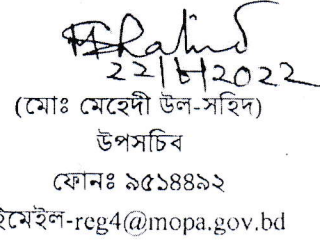 22/6/2022
(মোঃ মেহেদী উল-সহিদ)
উপসচিব
ফোনঃ ৯৫১৪৪৯২
ইমেইল-reg4@mopa.gov.bd